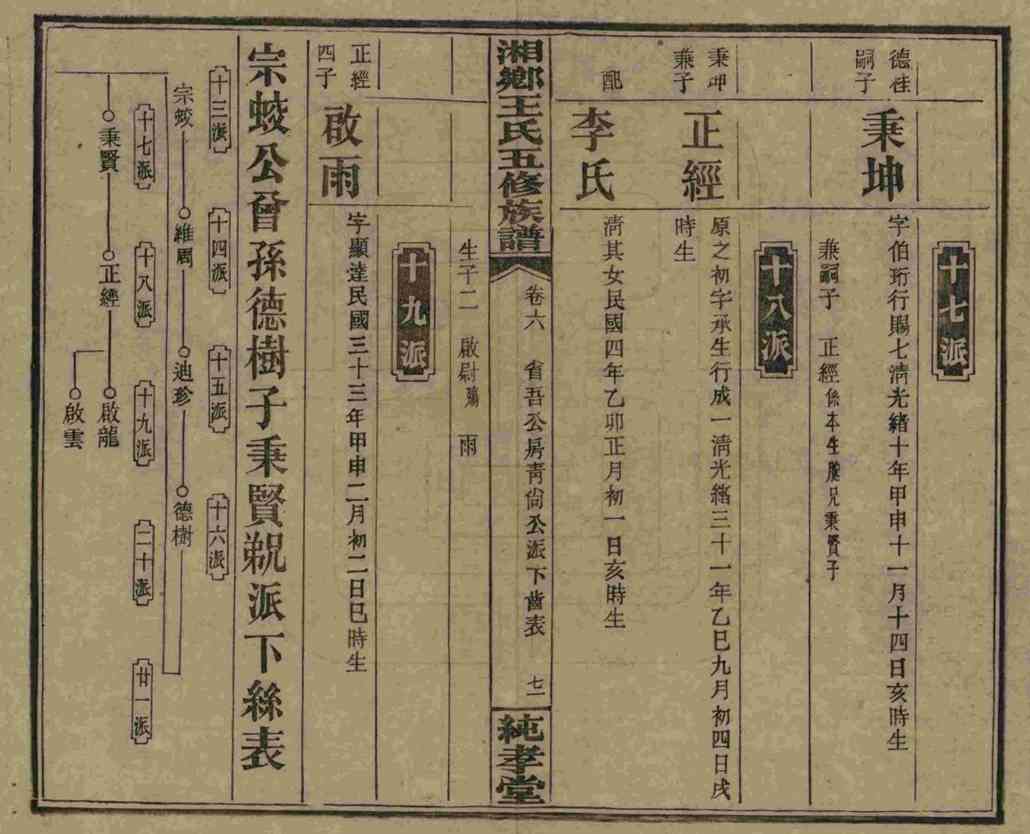 十七派
德桂
嗣子
秉坤
字伯珩行賜七淸光緒十年甲申十一月十四日亥時生
兼嗣子 正經係本生胞兄秉賢子
十八派
秉坤
兼子
正經
原之初字承生行成一淸光緒三十一年乙巳九月初四日戌
時生
配
李氏
淸其女民國四年乙卯正月初一日亥時生
湘鄉王氏五修族譜
卷六 省吾公房靑尙公派下齒表 七二
純孝堂
生子二 啟尉殤 雨
十九派
正經
四子
啟雨
字顯達民國三十三年甲申二月初二日巳時生
宗蛟公曾孫德樹子秉賢派下絲表
十三派 十四派 十五派 十六派
宗蛟 維周 迪珍 德樹
十七派 十八派 十九派 二十派 廿一派
秉賢 正經 啟龍
啟雲